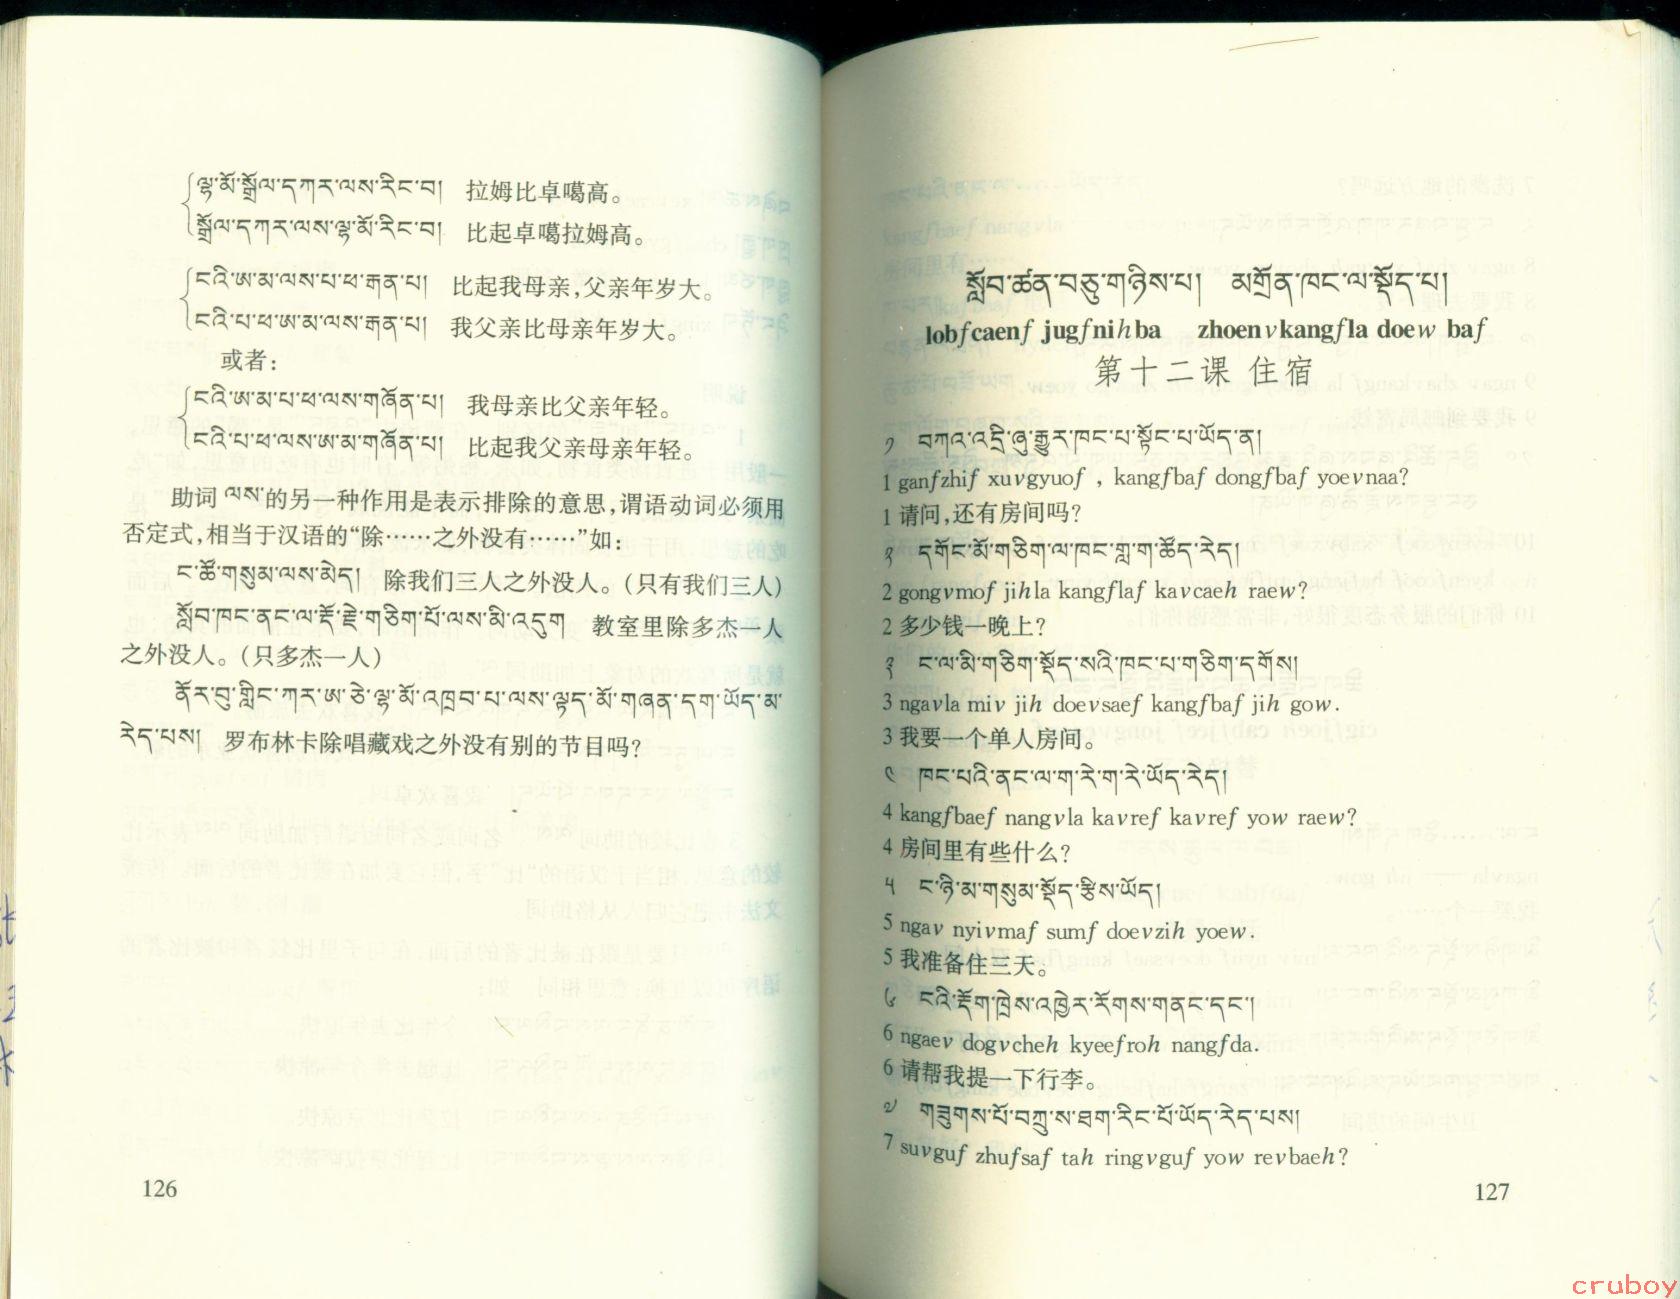 ལྷ་མོ་སྒྲོལ་དཀར་ལས་རིང་བ། 拉姆比卓噶高。
སྒྲོལ་དཀར་ལས་ལྷ་མོ་རིང་བ། 比起卓噶拉姆高。
ངའི་ཨ་མ་ལས་པ་ཕ་རྒན་པ། 比起我母亲,父亲年岁大。
ངའི་པ་ཕ་ཨ་མ་ལས་རྒན་པ། 我父亲比母亲年岁大。
或者:
ངའི་ཨ་མ་པ་ཕ་ལས་གཞོན་པ། 我母亲比父亲年轻。
ངའི་པ་ཕ་ལས་ཨ་མ་གཞོན་པ། 比起我父亲母亲年轻。
助词 ལས་ 的另一种作用是表示排除的意思,谓语动词必须用
否定式,相当于汉语的“除……之外没有……”如:
ང་ཚོ་གསུམ་ལས་མེད། 除我们三人之外没人。(只有我们三人)
སློབ་ཁང་ནང་ལ་རྡོ་རྗེ་གཅིག་པོ་ལས་མི་འདུག 教室里除多杰一人
之外没人。(只多杰一人)
ནོར་བུ་གླིང་ཀར་ཨ་ཅེ་ལྷ་མོ་འཁྲབ་པ་ལས་ལྟད་མོ་གཞན་དག་ཡོད་མ་
རེད་པས། 罗布林卡除唱藏戏之外没有别的节目吗?
126
སློབ་ཚན་བཅུ་གཉིས་པ། མགྲོན་ཁང་ལ་སྡོད་པ།
lobfcaenf jugfnihba zhoenvkangfla doew baf
第十二课 住宿
༡ བཀའ་འདྲི་ཞུ་རྒྱུར་ཁང་པ་སྟོང་པ་ཡོད་ན།
1 ganfzhif xuvgyuof , kangfbaf dongfbaf yoevnaa?
1 请问,还有房间吗?
༢ དགོང་མོ་གཅིག་ལ་ཁང་གླ་ག་ཚོད་རེད།
2 gongvmof jihla kangflaf kavcaeh raew?
2 多少钱一晚上?
༣ ང་ལ་མི་གཅིག་སྡོད་སའི་ཁང་པ་གཅིག་དགོས།
3 ngavla miv jih doevsaef kangfbaf jih gow.
3 我要一个单人房间。
༤ ཁང་པའི་ནང་ལ་ག་རེ་ག་རེ་ཡོད་རེད།
4 kangfbaef nangvla kavref kavref yow raew?
4 房间里有些什么?
༥ ང་ཉི་མ་གསུམ་སྡོད་རྩིས་ཡོད།
5 ngav nyivmaf sumf doevzih yoew.
5 我准备住三天。
༦ ངའི་དོག་ཁྲེས་འཁྱེར་རོགས་གནང་དང་།
6 ngaev dogvcheh kyeefroh nangfda.
6 请帮我提一下行李。
༧ གཟུགས་པོ་བཀྲུ་ས་ཐག་རིང་པོ་ཡོད་རེད་པས།
7 suvguf zhufsaf tah ringvguf yow revbaeh?
127
cruboy